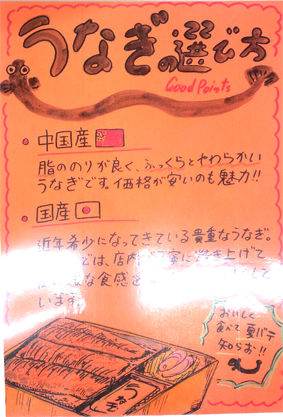 うなぎの選び方
Good Points
・中国産
脂ののりが良く、ふっくらとやわらかい
うなぎです。価格が安いのも魅力!!
・国産
近年希少になってきている貴重なうなぎ。
では、店内で 焼き上げて
な食感を して
います
おいしく
食べて夏バテ
知らお!!
うなぎ